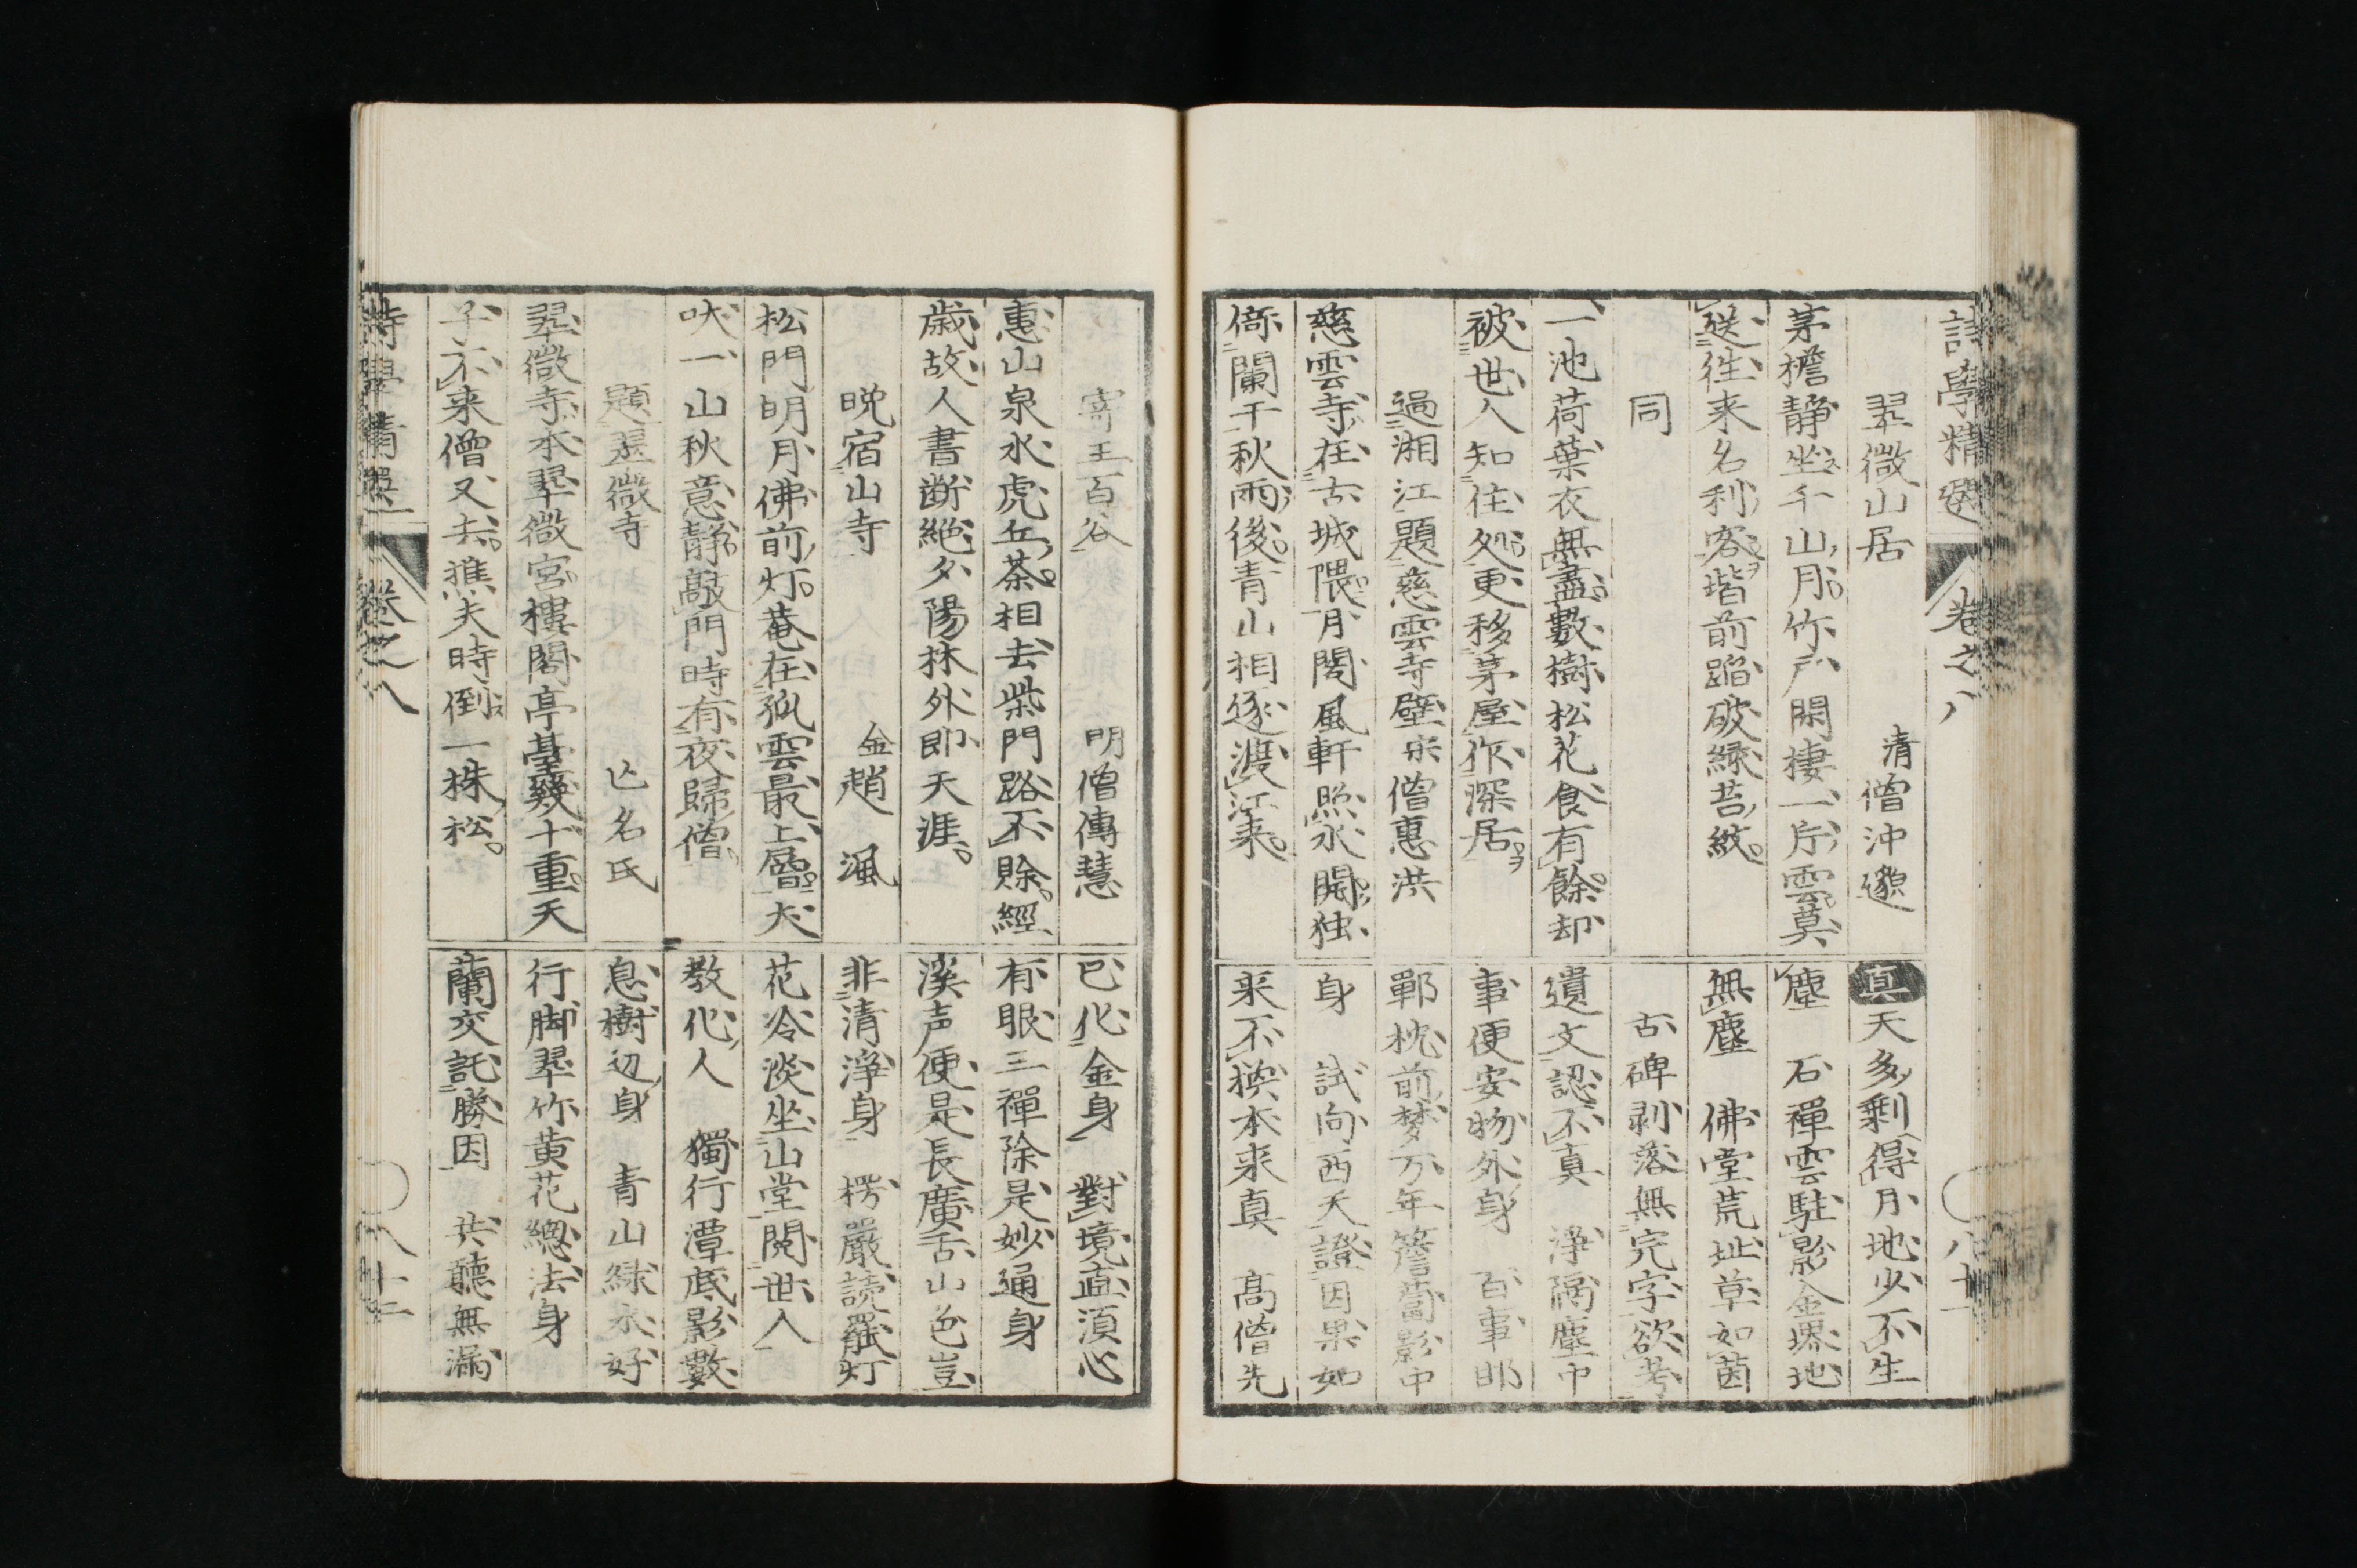 詩學精選 卷之八 八十一
翠微山居 清僧沖邈
茅檐静坐千山月竹戸閑棲一片雲莫
送往来名利客堦前踏破緑苔紋
同
一池荷葉衣無盡數樹松花食有餘却
被世人知住処更移茅屋作深居
過湘江題慈雲寺壁 宋僧惠洪
慈雲寺在古城隈月閣風軒照水開独
倚闌干秋雨後青山相逐渡江来
真 天多剰得月地少不生
塵 石禪雲駐影金堺地
無塵 佛堂荒址草如茵
古碑剥落無完字欲考
遺文認不真 浄隔塵中
事便安物外身 百事邯
鄲枕前梦万年簷蔔影中
身 試向西天證因果如
来不換本来真 髙僧先
寄王百谷 明僧傳慧
惠山泉水虎丘茶相去柴門路不賖經
歳故人書断絶夕陽林外即天涯
晩宿山寺 金趙渢
松門明月佛前灯菴在孤雲最上層犬
吠一山秋意静敲門時有夜歸僧
題翠微寺 亡名氏
翠微寺本翠微宮樓閣亭臺幾十重天
子不来僧又去樵夫時倒一株松
已化金身 對境直須心
有眼三禪除是妙通身
溪声便是長廣舌山色豈
非清淨身 楞嚴読罷灯
花冷淡坐山堂閲世人
教化人 獨行潭底影數
息樹辺身 青山緑水好
行脚翠竹黄花總法身
蘭交託勝因 共聴無漏
詩學精選 卷之八 八十二